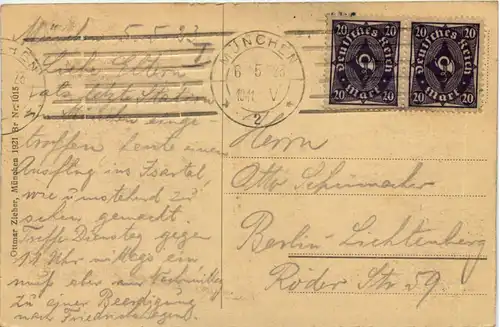 München 5.5.23
Liebe Eltern
als letzte Station
in München einge
troffen heute einen
Ausflug ins Isartal,
wie umstehend zu
sehen gemacht.
Treffe Dienstag gegen
11 Uhr mittags ein
muß aber am Nachmittag
zu einer Beerdigung
nach Friedrichshagen.
Ottmar Zieher, München 1921 Br Nr. 1015
MÜNCHEN
2
Deutsches Reich
20 Mark 20
Deutsches Reich
20 Mark 20
Herrn
Otto Schumacher
Berlin-Lichtenberg
Röder Str 59.